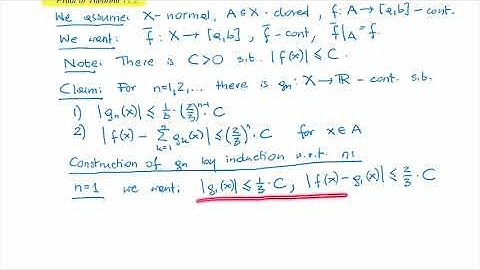 We assume: X-normal, A⊆X-closed, f: A → [a,b] - cont.
We want: f̄: X → [a,b], f̄-cont, f̄|_A = f.
Note: There is C>0 s.t. |f(x)| ≤ C.
Claim: For n=1,2,... there is gₙ: X → ℝ - cont. s.t.
1) |gₙ(x)| ≤ 1/3 · (2/3)ⁿ⁻¹ · C
2) |f(x) - ∑ₖ₌₁ⁿ gₖ(x)| ≤ (2/3)ⁿ · C for x∈A
Construction of gₙ by induction w.r.t. n:
n=1 we want: |g₁(x)| ≤ 1/3 · C, |f(x) - g₁(x)| ≤ 2/3 · C